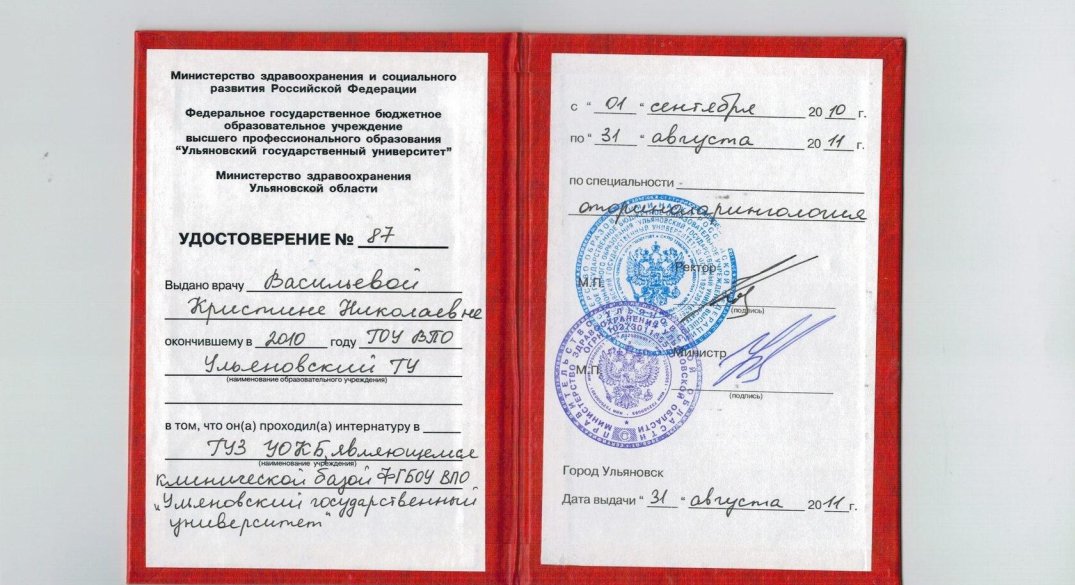 Министерство здравоохранения и социального
развития Российской Федерации
Федеральное государственное бюджетное
образовательное учреждение
высшего профессионального образования
"Ульяновский государственный университет"
Министерство здравоохранения
Ульяновской области
УДОСТОВЕРЕНИЕ № 87
Выдано врачу Васильевой
Кристине Николаевне
окончившему в 2010 году ГОУ ВПО
Ульяновский ГУ
(наименование образовательного учреждения)
в том, что он(а) проходил(а) интернатуру в
ГУЗ УОКБ, являющемся
(наименование учреждения)
клинической базой ФГБОУ ВПО
"Ульяновский государственный
университет"
с "01" сентября 2010 г.
по "31" августа 2011 г.
по специальности
оториноларингология
Ректор
М.П.
(подпись)
Министр
М.П.
(подпись)
Город Ульяновск
Дата выдачи "31" августа 2011 г.